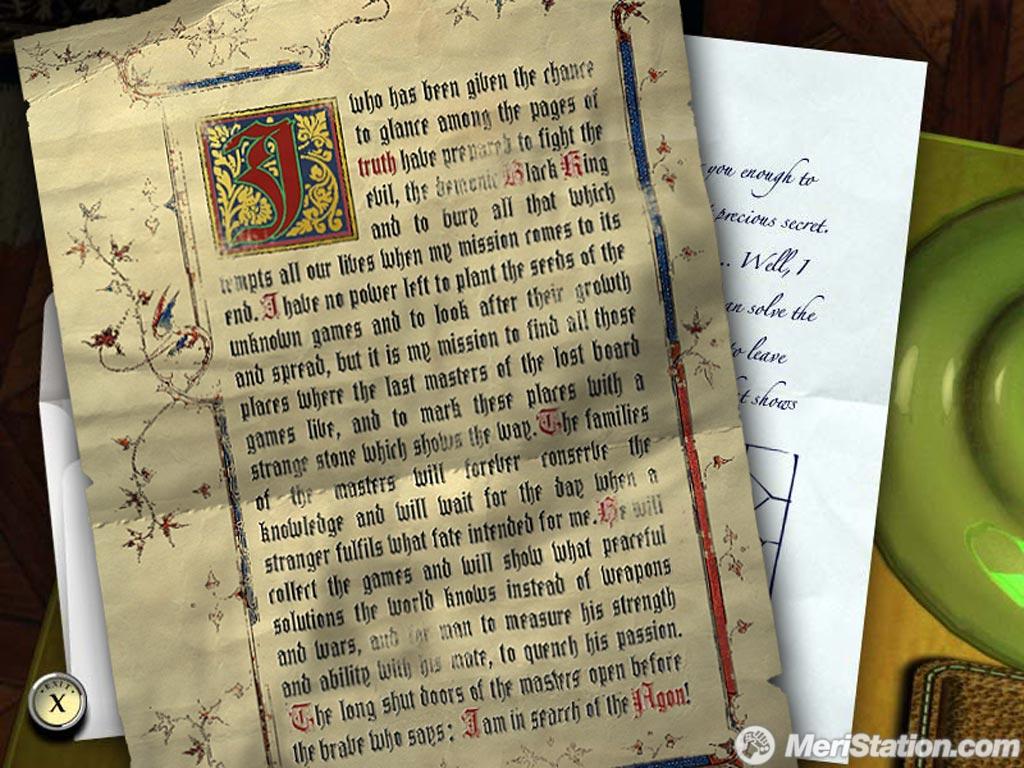 I who has been given the chance
to glance among the pages of
truth have prepared to fight the
evil, the demonic Black King
and to bury all that which
tempts all our lives when my mission comes to its
end. I have no power left to plant the seeds of the
unknown games and to look after their growth
and spread, but it is my mission to find all those
places where the last masters of the lost board
games live, and to mark these places with a
strange stone which shows the way. The families
of the masters will forever conserve the
knowledge and will wait for the day when a
stranger fulfils what fate intended for me. He will
collect the games and will show what peaceful
solutions the world knows instead of weapons
and wars, and for man to measure his strength
and ability with his mate, to quench his passion.
The long shut doors of the masters open before
the brave who says: I am in search of the Agon!
you enough to
precious secret.
... Well, I
an solve the
to leave
t shows
EXIT
X
MeriStation.com